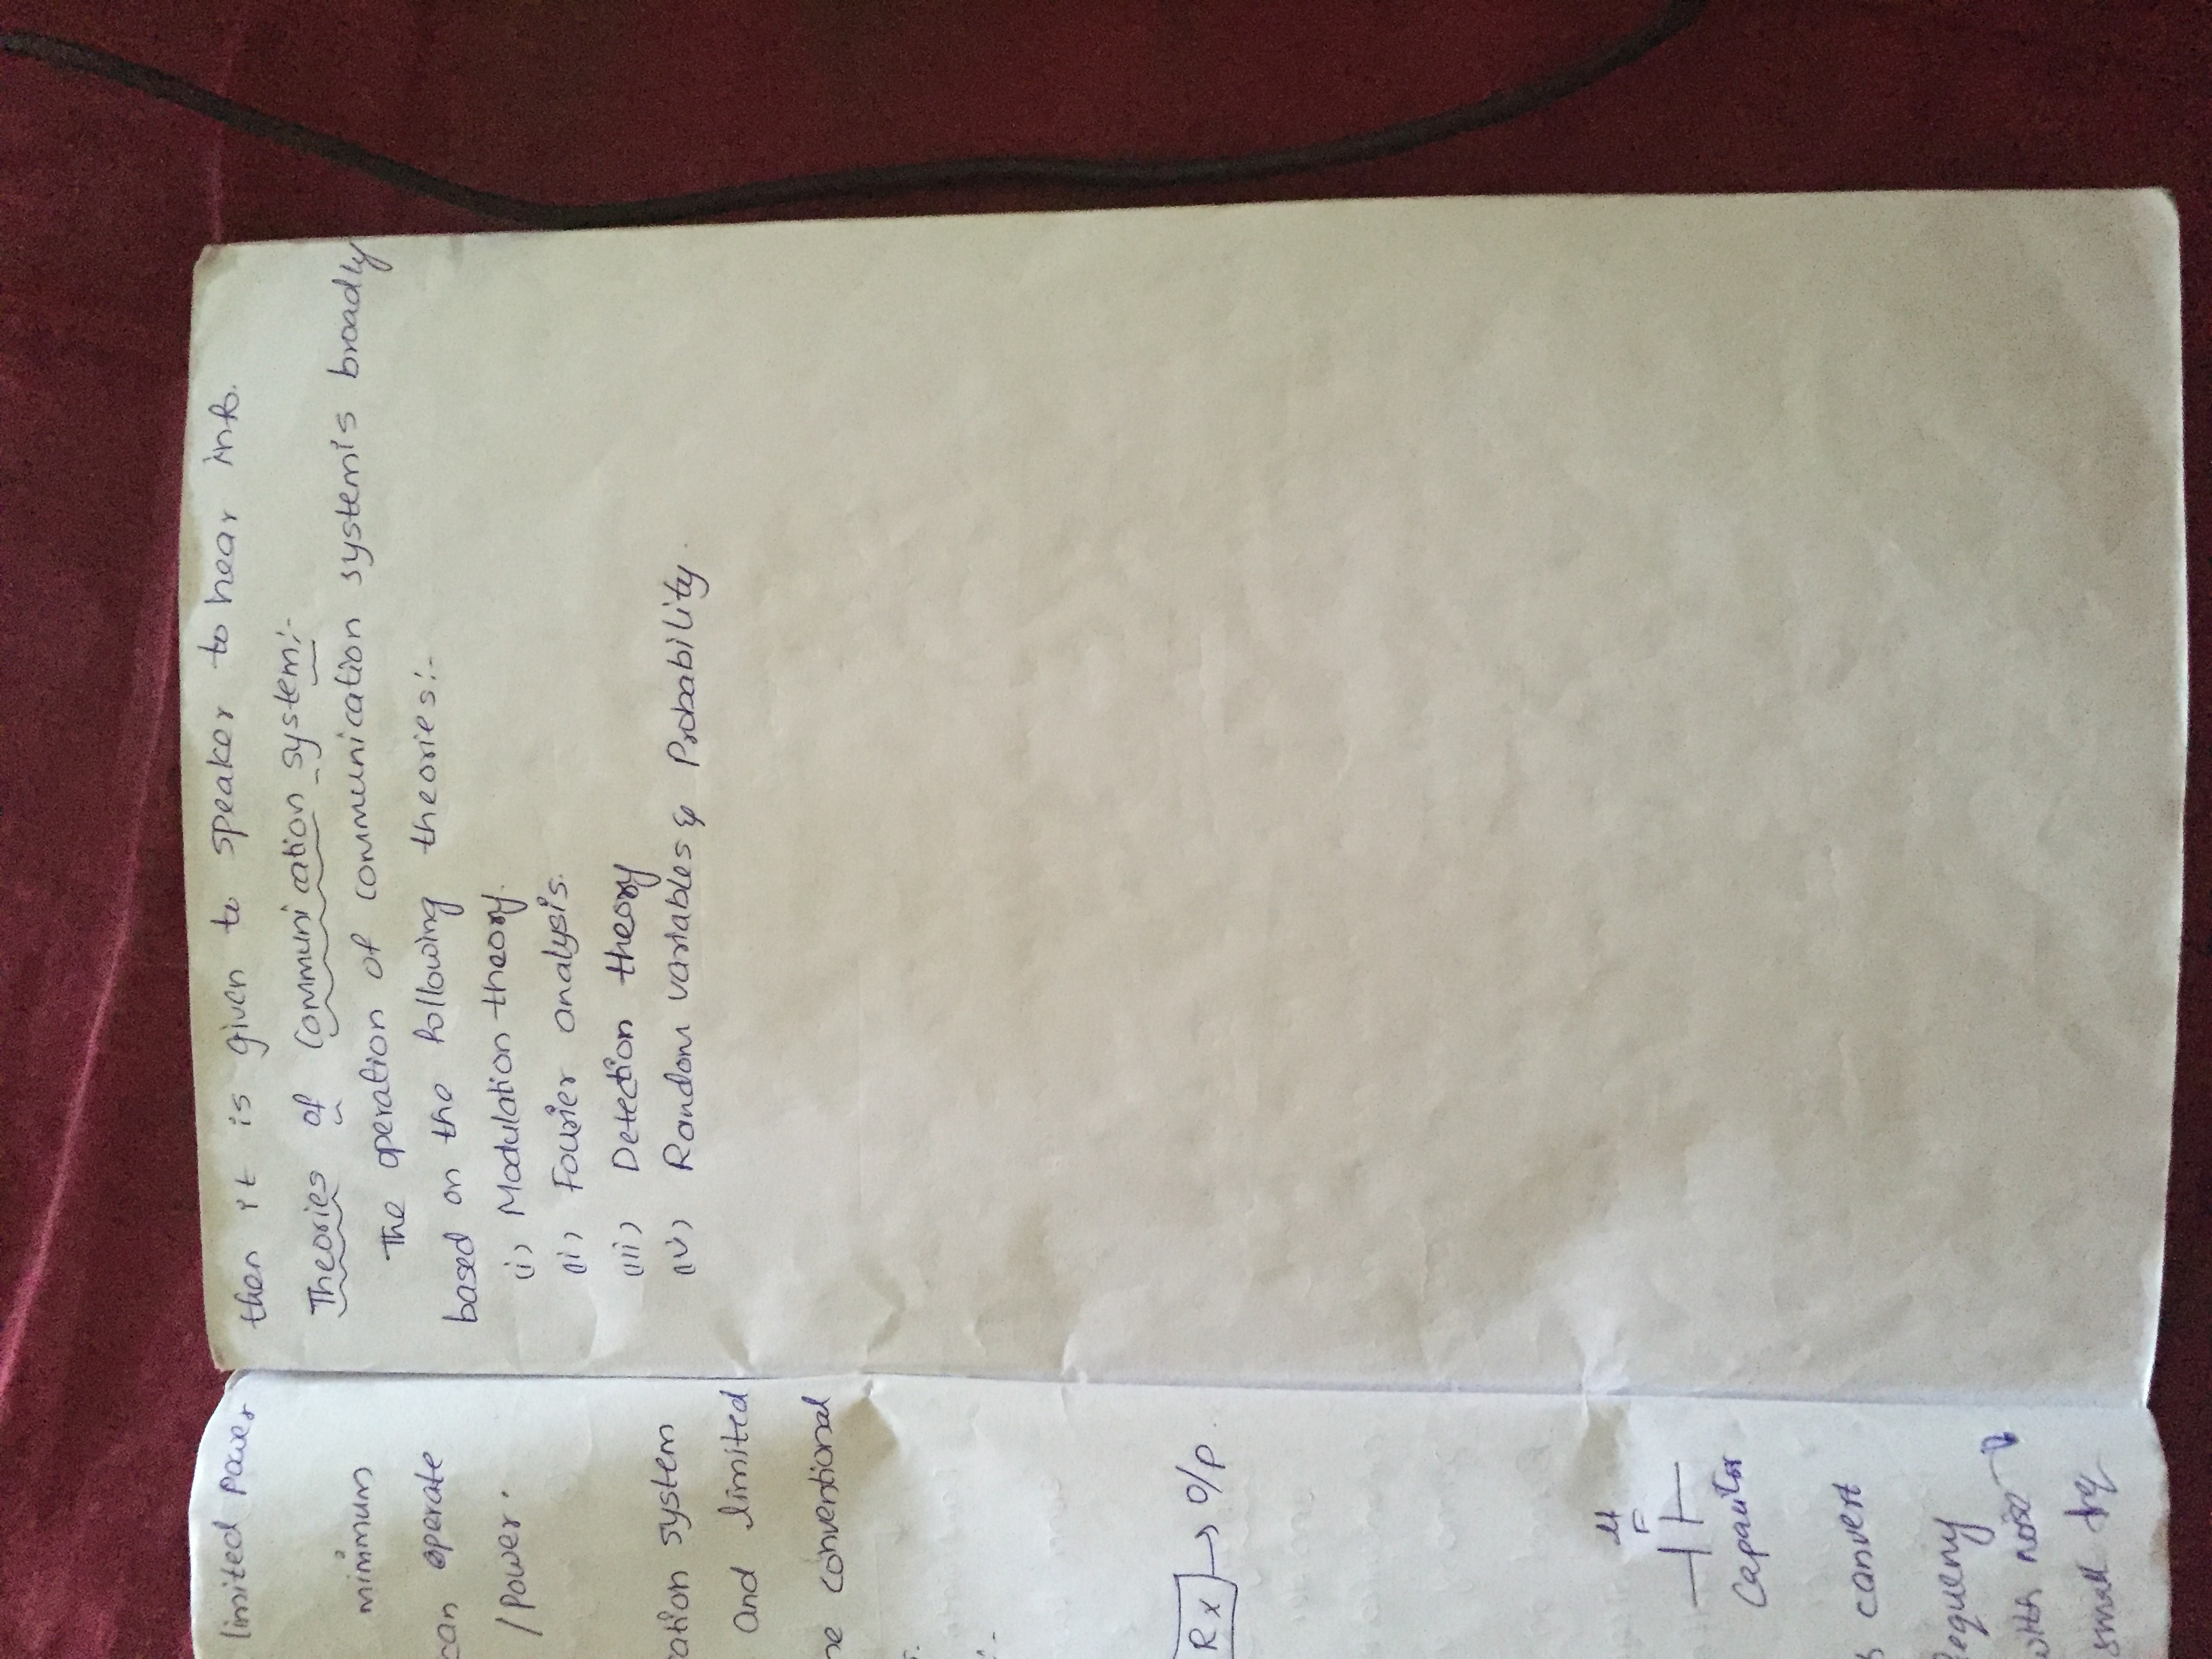 limited power
minimum
can operate
/ Power.
ation system
and limited
conventional
Rx → O/P
F
Capacitor
convert
with noise
small frq
then it is given to speaker to hear info.
Theories of Communication system:-
The operation of communication system is broadly
based on the following theories:-
(i) Modulation theory.
(ii) Fourier analysis.
(iii) Detection theory
(iv) Random variables & Probability.